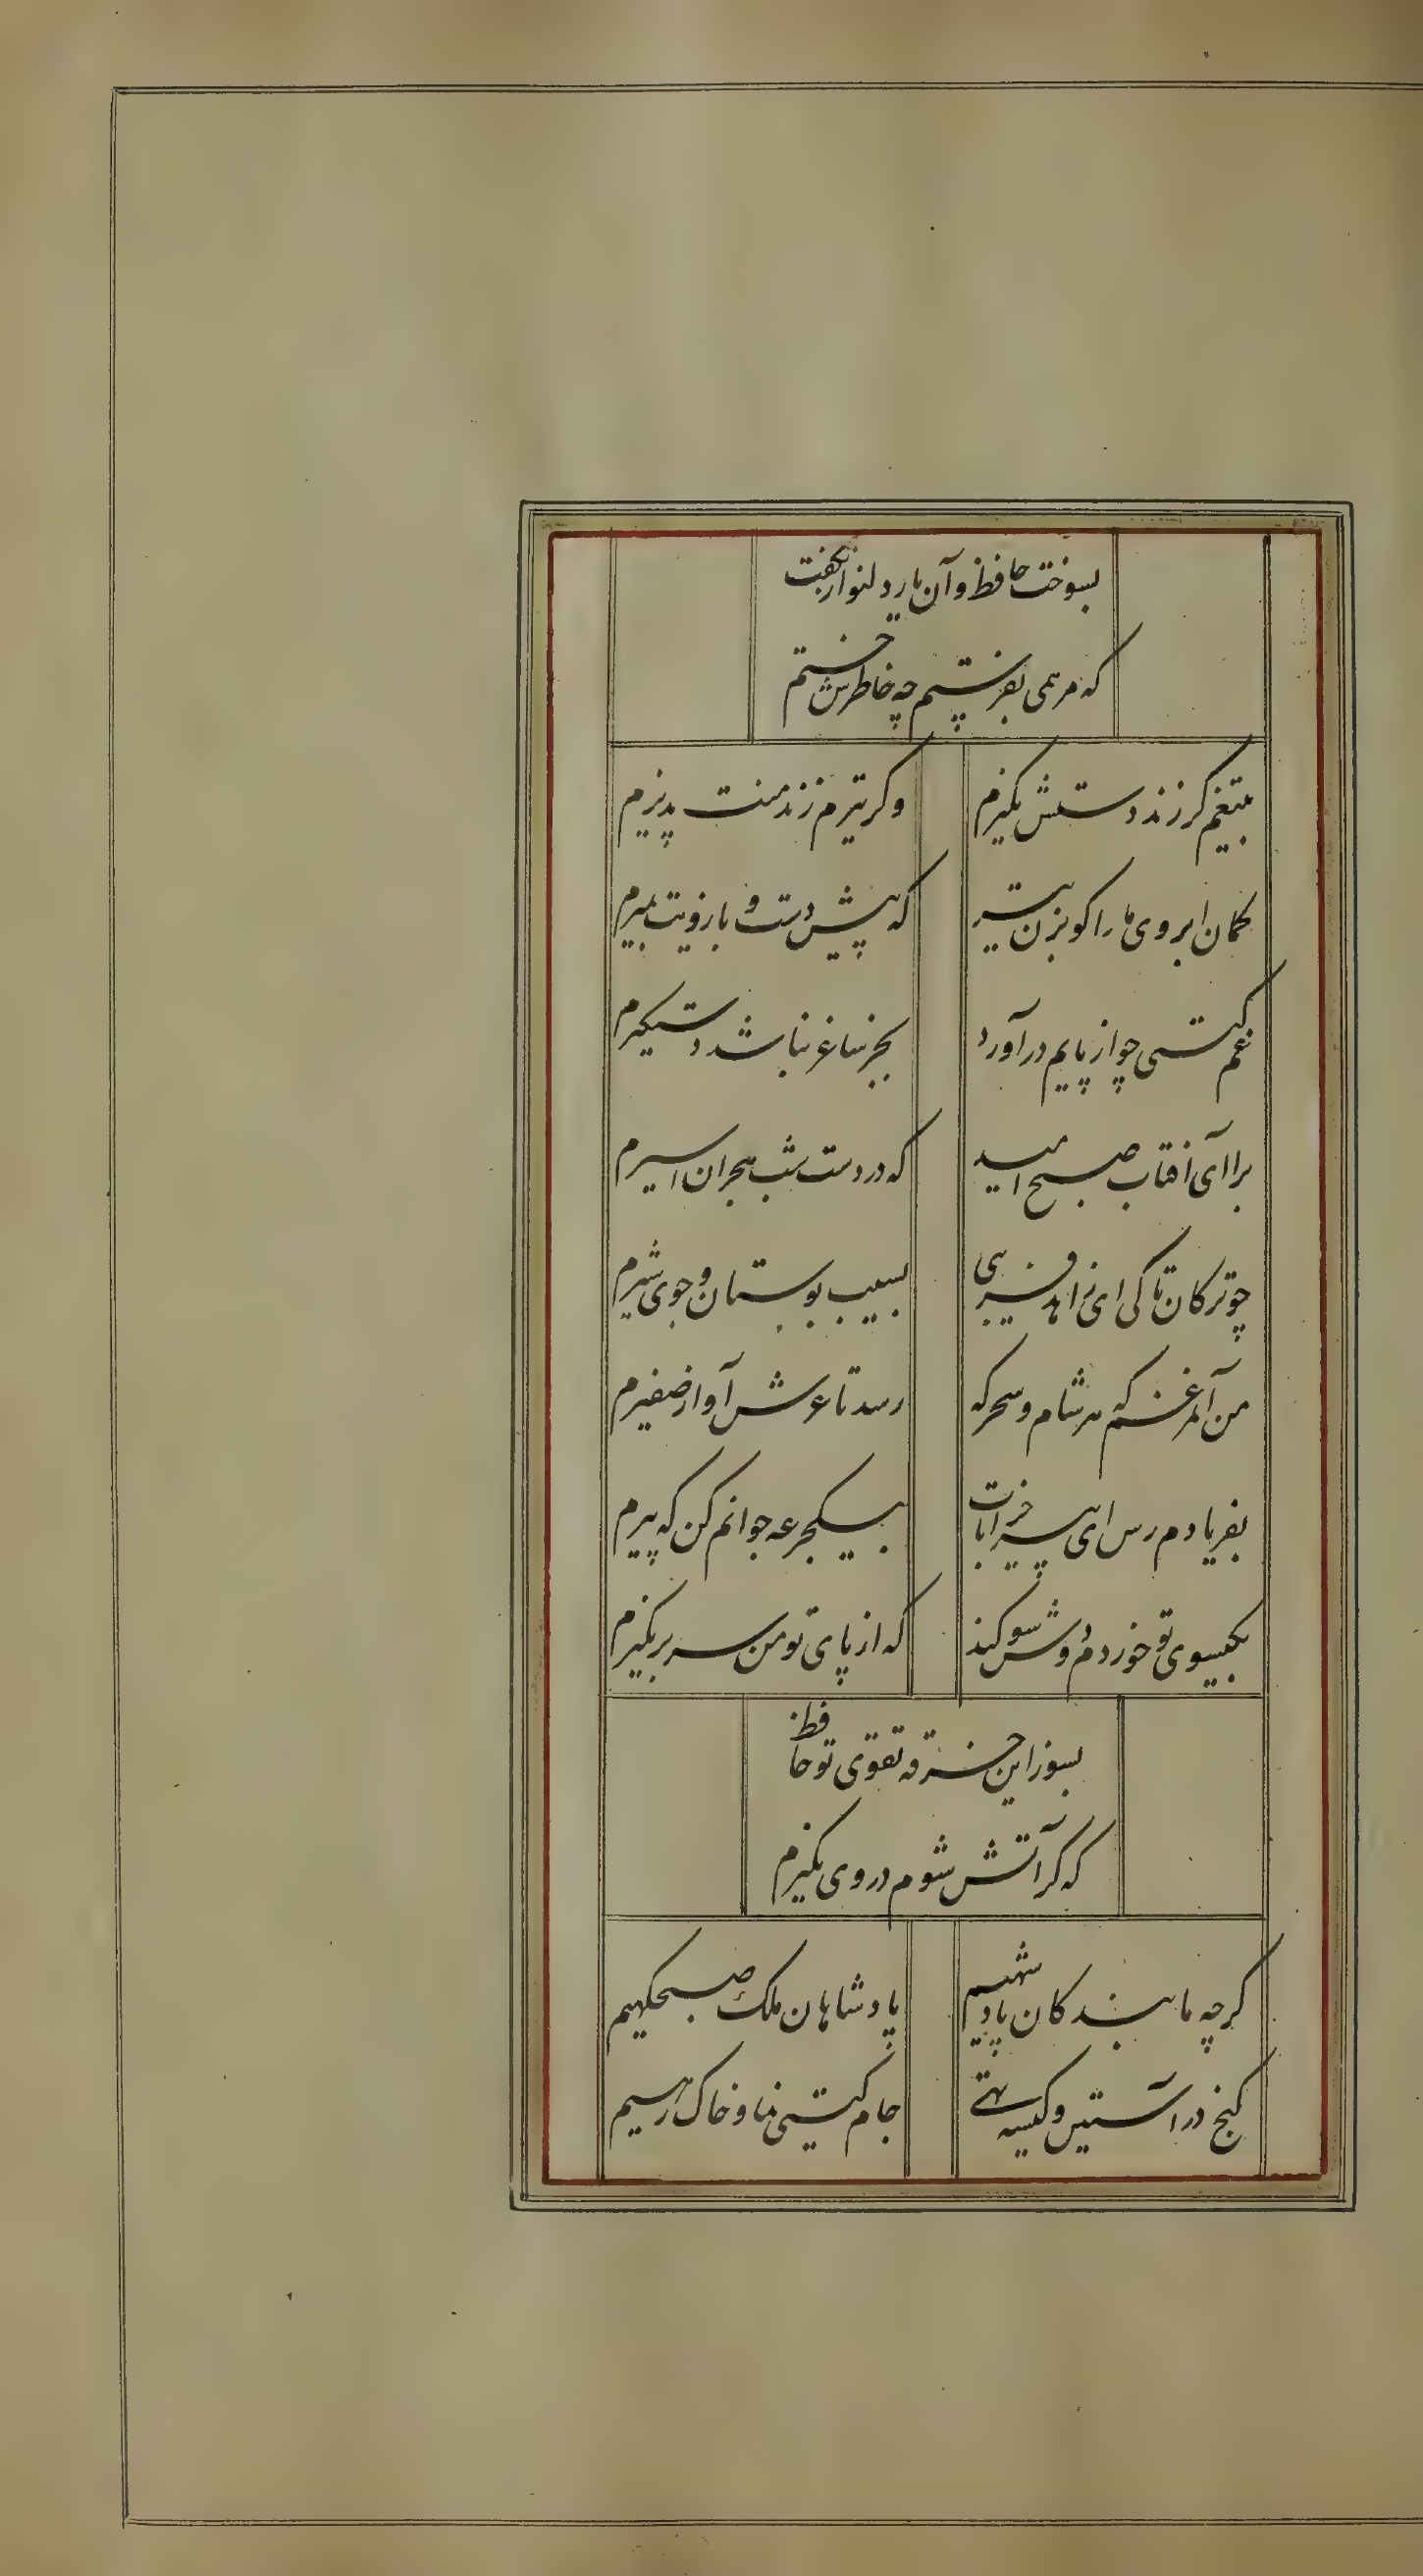 بسوخت حافظ و آن یار دلنواز نگفت
که مرهمی بفرستم چه خاطرش خستم
بتیغم کر زند دستش نگیرم
وکر تیرم زند منت پذیرم
کمان ابروی ما را کو بزن تیر
که پیش دست و بازویت بمیرم
غم کیتی چو از پایم درآورد
بجز ساغر نباشد دستیکیرم
برآ ای آفتاب صبح امید
که در دست شب هجران اسیرم
چو ترکان تا کی ای زاهد فریبی
بسیب بوستان و جوی شیرم
من آنمرغم که هر شام و سحرکه
رسد تا عرش آواز صفیرم
بفریادم رس ای پیر خرابات
بیکجرعه جوانم کن که پیرم
بکیسوی تو خوردم دوش سوکند
که از پای تو من سر برنگیرم
بسوز این خرقه تقوی تو حافظ
که کر آتش شوم در وی نگیرم
کرچه ما بندکان پادشهیم
پادشاهان ملک صبحکهیم
کنج در آستین و کیسه تهی
جام کیتی نما و خاک رهیم